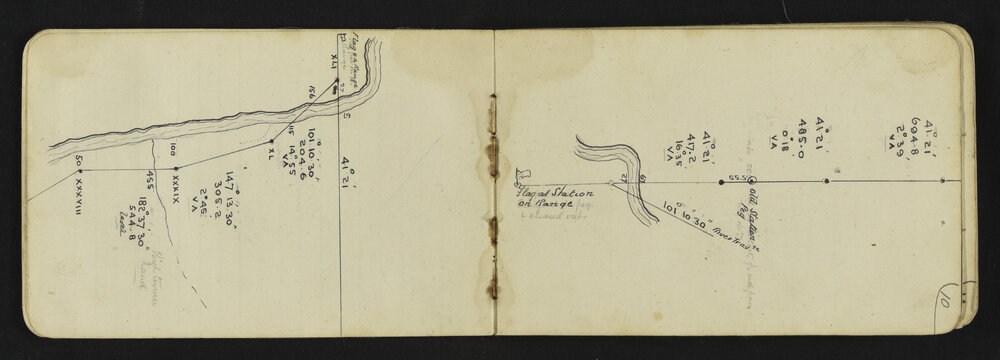 Flag on Range
XLI
27
60
156
57
41° 21'
101° 10' 30"
204.6
14° 55'
VA
"15
XL
147° 13' 30"
305.2
2° 45'
VA
100
XXXIX
182° 37' 30"
544.8
Level
455
High terrace
Land
50
XXXVIII
41° 21'
694.8
2° 39'
VA
41° 21'
485.0
0° 18'
VA
41° 21'
417.2
16° 35'
VA
55.5
@ old Station
Peg
27
67
Flag at Station
on Range peg
101° 10' 30" River Trav
10